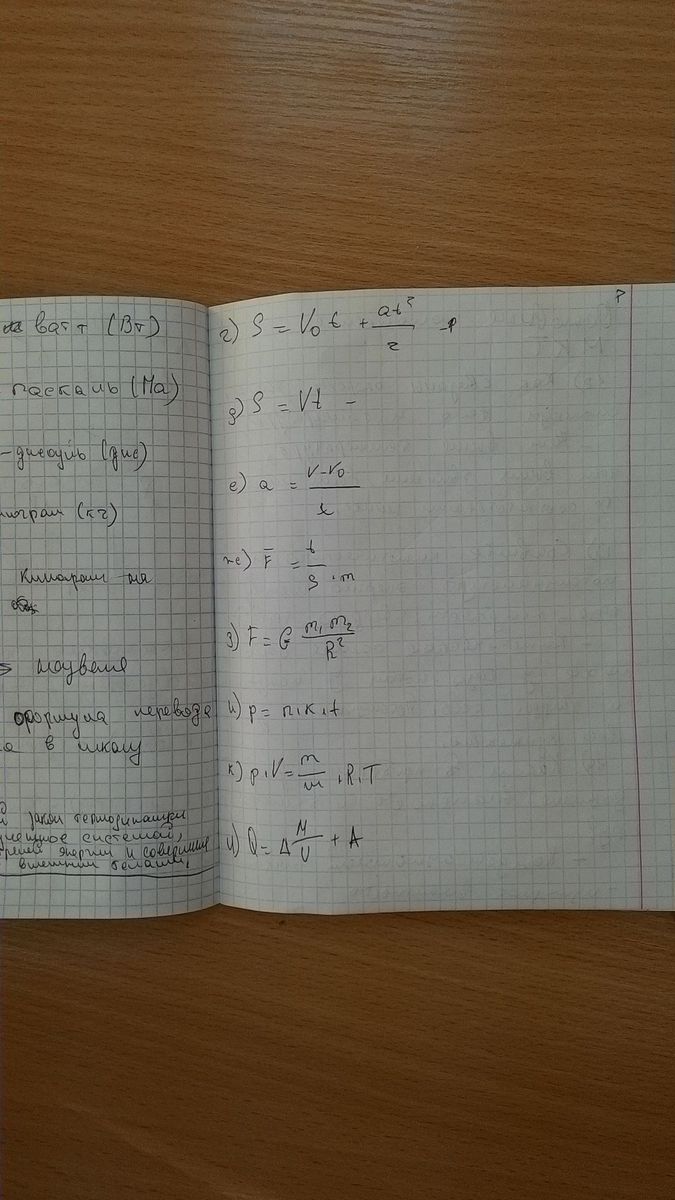 ватт (Вт)
паскаль (Па)
-джоуль (дж)
лограм (кг)
Килограм на
моувеля
формула перевода
а в шкалу
закон термодинамики
системой,
энергии и совершение
внешними телами,
г) S = V₀ t + at²/2
д) S = Vt -
е) a = V-V₀/t
ж) F̅ = t/S · m
з) F = G m₁ m₂/R²
и) p = n · k · t
к) p · V = m/m · R · T
и) Q = Δ M/U + A